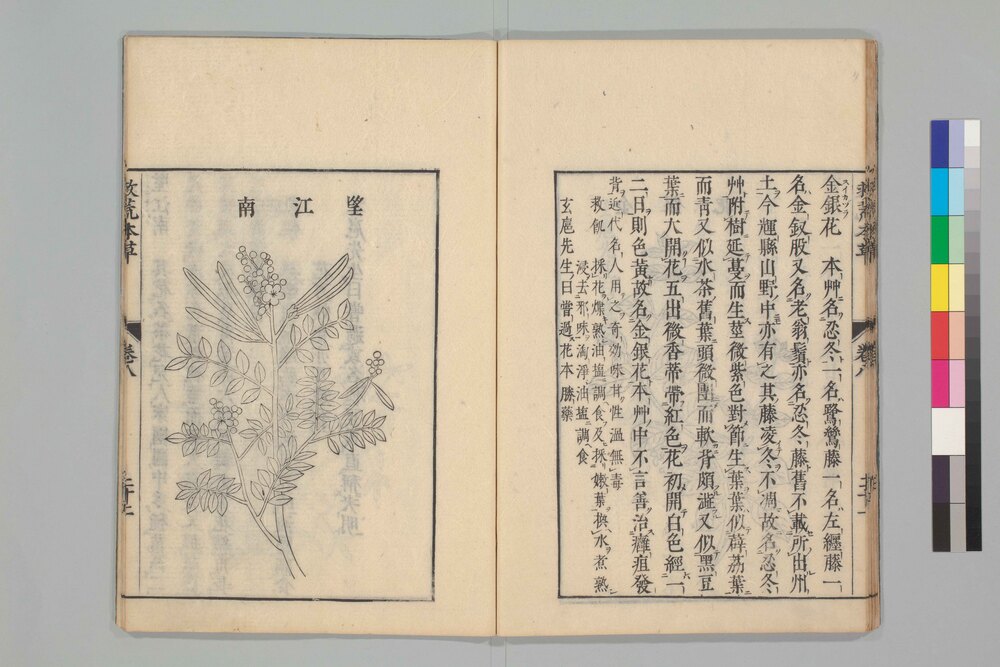 救荒本草
卷八
金銀花　本艸名忍冬一名鷺鷥藤一名左纏藤一
スイカヅラ
名金釵股又名老翁鬚亦名忍冬藤舊不載所出州
土今輝縣山野中亦有之其藤凌冬不凋故名忍冬
艸附樹延蔓而生莖微紫色對節生葉葉似薜荔葉
而青又似水茶舊葉頭微團而軟背頗澁又似黑豆
葉而大開花五出微香蒂帶紅色花初開白色經一
二日則色黃故名金銀花本艸中不言善治癰疽發
背近代名人用之奇効味甘性溫無毒
救飢　採花煠熟油塩調食及採嫩葉換水煮熟
浸去邪味淘淨油塩調食
玄扈先生曰嘗過花本勝藥
望江南
救荒本草
卷八